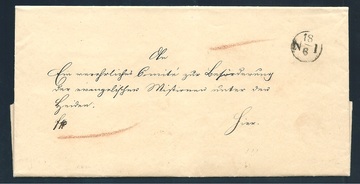 An
Ein verehrliches Comité zur Beförderung
der evangelischen Missionen unter den
Heiden.
Hier.
N 18/6 I